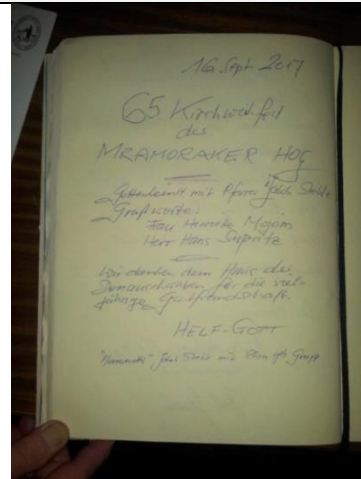 16 Sept. 2017
65 Kirchweihfest
des
MRAMORAKER HOG
Gottesdienst mit Pfarrer Jakob Stehle
Grußworte:
Frau Henriette Mojem
Herr Hans Supritz
Wir danken dem Haus der
Donauschwaben für die viel-
jährige Gastfreundschaft.
HELF-GOTT
Jakob Stehle mit